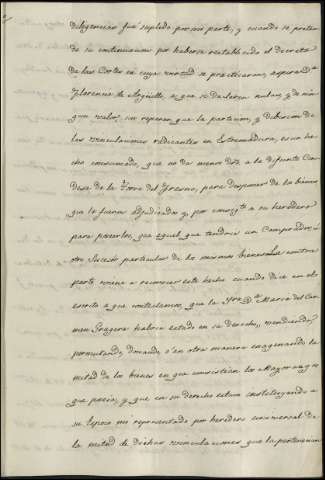 diligencias fué suplido por mi parte, y cuando se pretende
de su continuacion por haberse restablecido el decreto
de las Cortes en cuya virtud se practicaron, aspira D.
Florencio de Arguello, a que se declaren nulas y de nin
gun valor, sin reparar que la particion, y division de
las vinculaciones radicantes en Estremadura, es un he
cho consumado, que no da menos dro. a la difunta Con
desa de la Torre del Fresno, para disponer de los bienes
que le fueron adjudicados y por consigte a su heredero
para poseerlos, que aquel que tendria un Comprador, ú
otro sucesor particular de los mismos bienes. La contra
parte viene a reconocer este hecho cuando dice en el
escrito a que contestamos, que la Sra. Da. Maria del Car
men Grajera habria estado en su derecho, vendiendo,
permutando, donando, ó en otra manera enagenando la
mitad de los bienes en que consistian los Mayorazgos
que poseia, y que en su derecho estuvo instituyendo a
su Esposo mi representado por heredero universal de
la mitad de dichas vinculaciones que la pertenecian